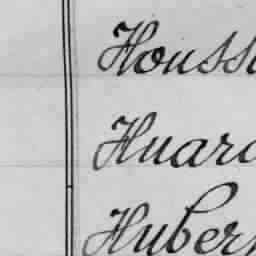 Houss
Huard
Huber